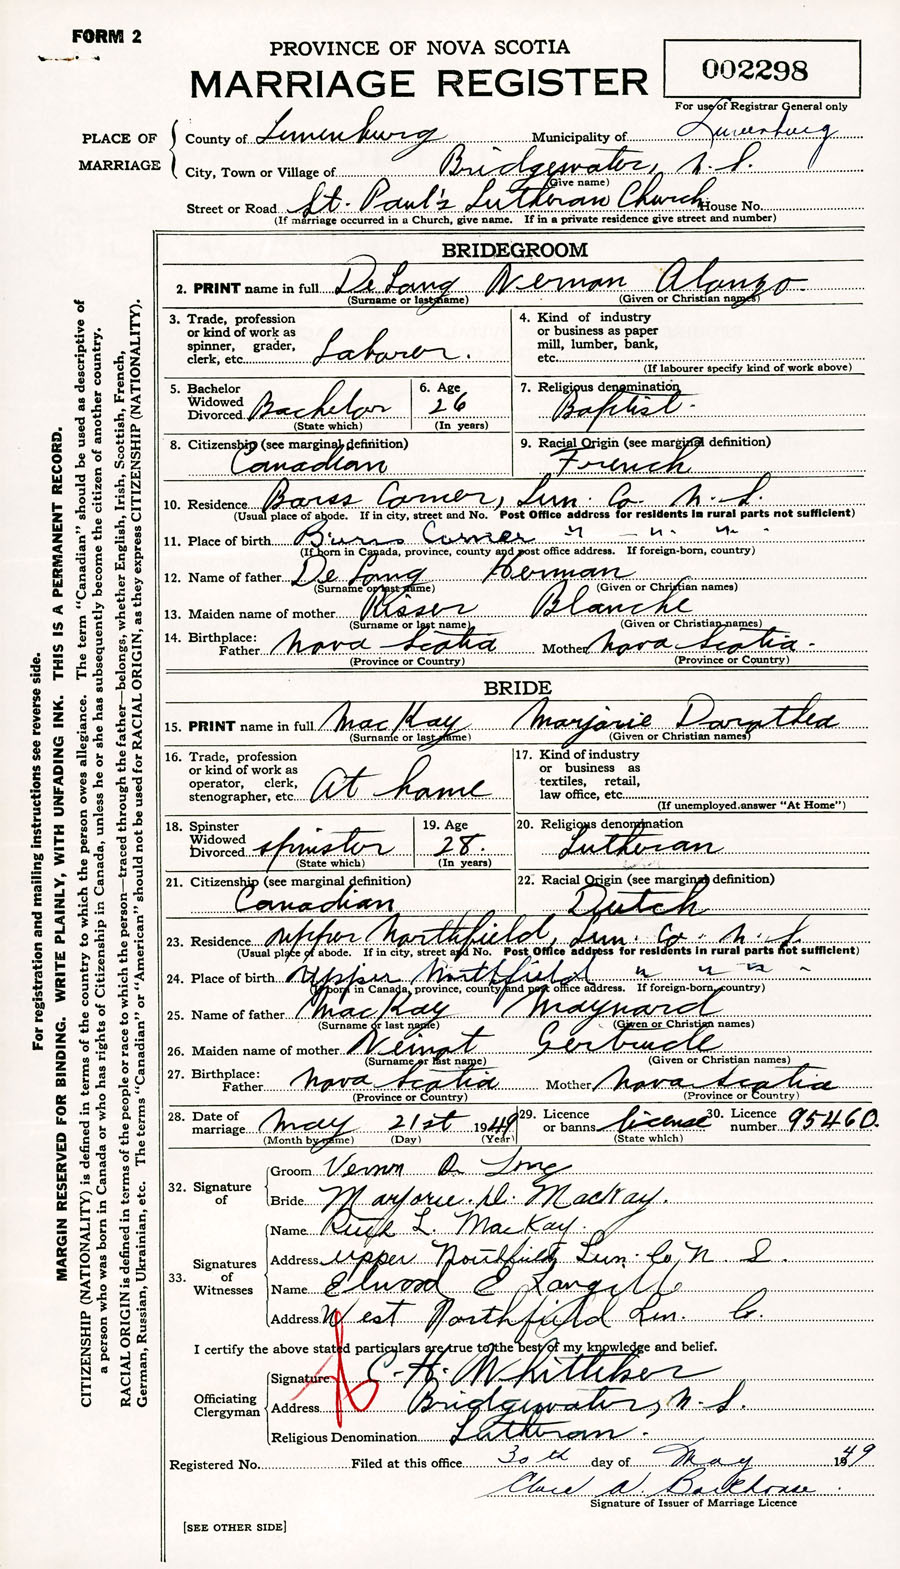 FORM 2
PROVINCE OF NOVA SCOTIA
MARRIAGE REGISTER
002298
For use of Registrar General only
PLACE OF MARRIAGE
County of Lunenburg Municipality of Lunenburg
City, Town or Village of Bridgewater, N. S.
(Give name)
Street or Road St. Paul's Lutheran Church House No.
(If marriage occurred in a Church, give name. If in a private residence give street and number)
BRIDEGROOM
2. PRINT name in full De Long Vernon Alonzo
(Surname or last name) (Given or Christian names)
3. Trade, profession or kind of work as spinner, grader, clerk, etc. Laborer.
4. Kind of industry or business as paper mill, lumber, bank, etc.
(If labourer specify kind of work above)
5. Bachelor Widowed Divorced Bachelor
(State which)
6. Age 26
(In years)
7. Religious denomination Baptist.
8. Citizenship (see marginal definition) Canadian
9. Racial Origin (see marginal definition) French
10. Residence Barss Corner, Lun. Co. N. S.
(Usual place of abode. If in city, street and No. Post Office address for residents in rural parts not sufficient)
11. Place of birth Barss Corner " " " "
(If born in Canada, province, county and post office address. If foreign-born, country)
12. Name of father De Long Herman
(Surname or last name) (Given or Christian names)
13. Maiden name of mother Risser Blanche
(Surname or last name) (Given or Christian names)
14. Birthplace: Father Nova Scotia Mother Nova Scotia.
(Province or Country) (Province or Country)
BRIDE
15. PRINT name in full MacKay Marjorie Dorothea
(Surname or last name) (Given or Christian names)
16. Trade, profession or kind of work as operator, clerk, stenographer, etc. At home
17. Kind of industry or business as textiles, retail, law office, etc.
(If unemployed answer "At Home")
18. Spinster Widowed Divorced spinster
(State which)
19. Age 28.
(In years)
20. Religious denomination Lutheran
21. Citizenship (see marginal definition) Canadian
22. Racial Origin (see marginal definition) Dutch
23. Residence Upper Northfield, Lun. Co. N. S.
(Usual place of abode. If in city, street and No. Post Office address for residents in rural parts not sufficient)
24. Place of birth Upper Northfield " " " "
(If born in Canada, province, county and post office address. If foreign-born, country)
25. Name of father MacKay Maynard
(Surname or last name) (Given or Christian names)
26. Maiden name of mother Veinot Gertrude
(Surname or last name) (Given or Christian names)
27. Birthplace: Father Nova Scotia Mother Nova Scotia
(Province or Country) (Province or Country)
28. Date of marriage May 21st 1949
(Month by name) (Day) (Year)
29. Licence or banns license
(State which)
30. Licence number 95460.
32. Signature of
Groom Vernon De Long
Bride Marjorie. D. MacKay.
33. Signatures of Witnesses
Name Ruth L. MacKay.
Address Upper Northfield, Lun. Co. N. S.
Name Elwood E Langille
Address West Northfield Lun. Co.
I certify the above stated particulars are true to the best of my knowledge and belief.
Officiating Clergyman
Signature C. H. Whitteker
Address Bridgewater, N. S.
Religious Denomination Lutheran.
Registered No. Filed at this office 30th day of May 1949
A.
Signature of Issuer of Marriage Licence
[SEE OTHER SIDE]
For registration and mailing instructions see reverse side.
MARGIN RESERVED FOR BINDING. WRITE PLAINLY, WITH UNFADING INK. THIS IS A PERMANENT RECORD.
CITIZENSHIP (NATIONALITY) is defined in terms of the country to which the person owes allegiance. The term "Canadian" should be used as descriptive of
a person who was born in Canada or who has rights of Citizenship in Canada, unless he or she has subsequently become the citizen of another country.
RACIAL ORIGIN is defined in terms of the people or race to which the person—traced through the father—belongs, whether English, Irish, Scottish, French,
German, Russian, Ukrainian, etc. The terms "Canadian" or "American" should not be used for RACIAL ORIGIN, as they express CITIZENSHIP (NATIONALITY).